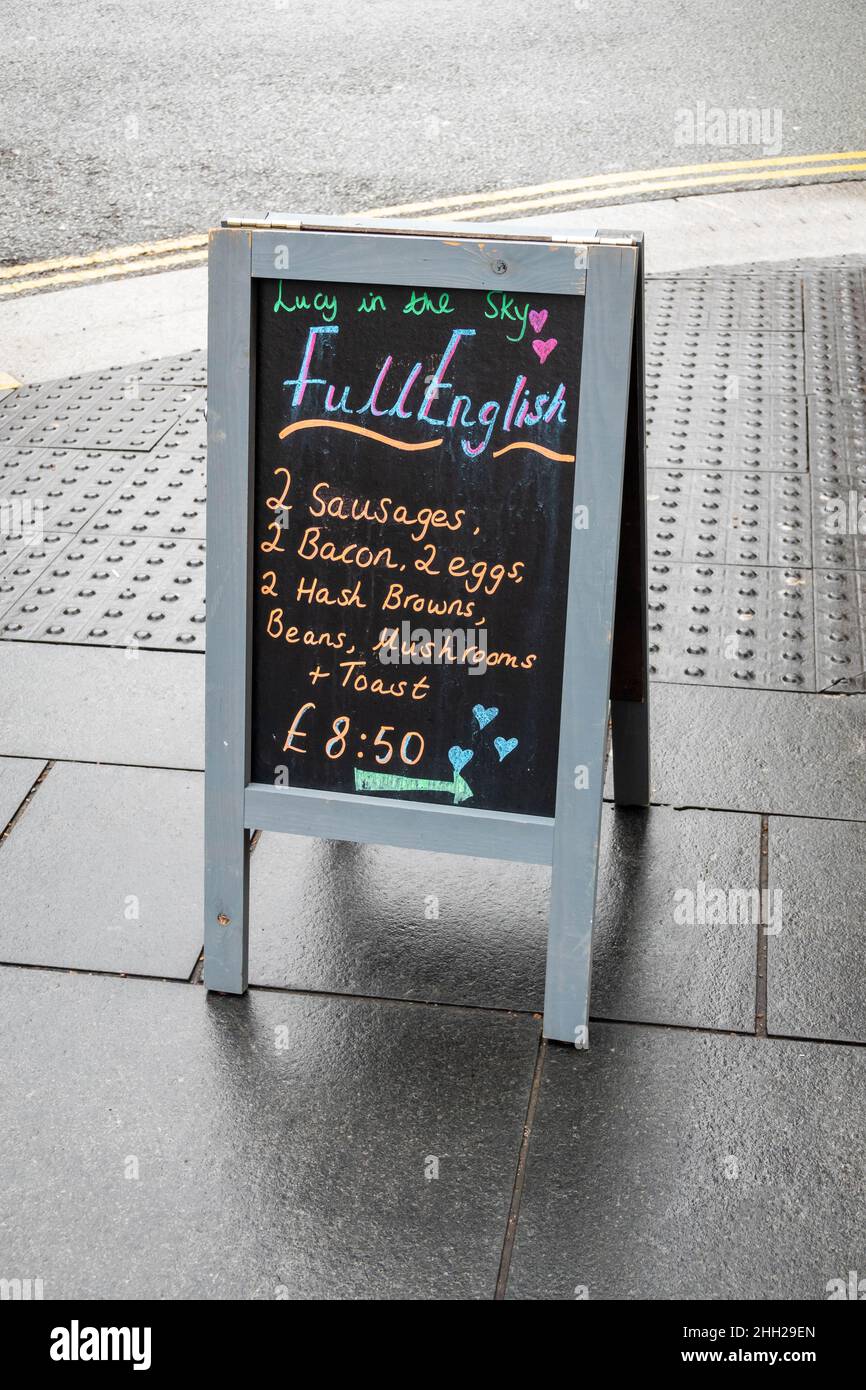 Lucy in the Sky
Full English
2 Sausages,
2 Bacon, 2 eggs,
2 Hash Browns,
Beans, Mushrooms
+ Toast
£8:50
alamy
Image ID: 2HH29EN
www.alamy.com